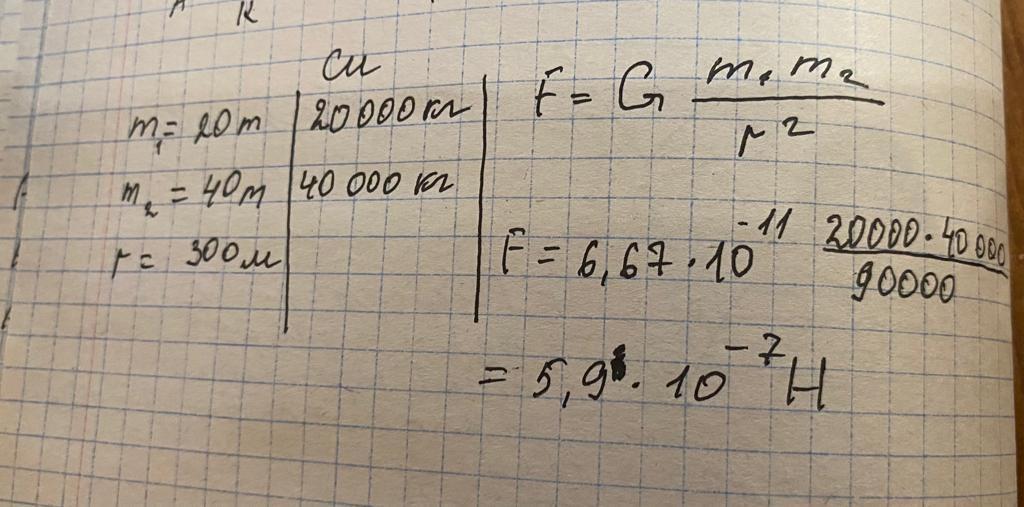 к
си
m₁ = 20т 20000 кг
m₂ = 40т 40 000 кг
r = 300м
F = G m₁ m₂ / r²
F = 6,67 · 10⁻¹¹ 20000 · 40 000 / 90000
= 5,9 · 10⁻⁷ Н